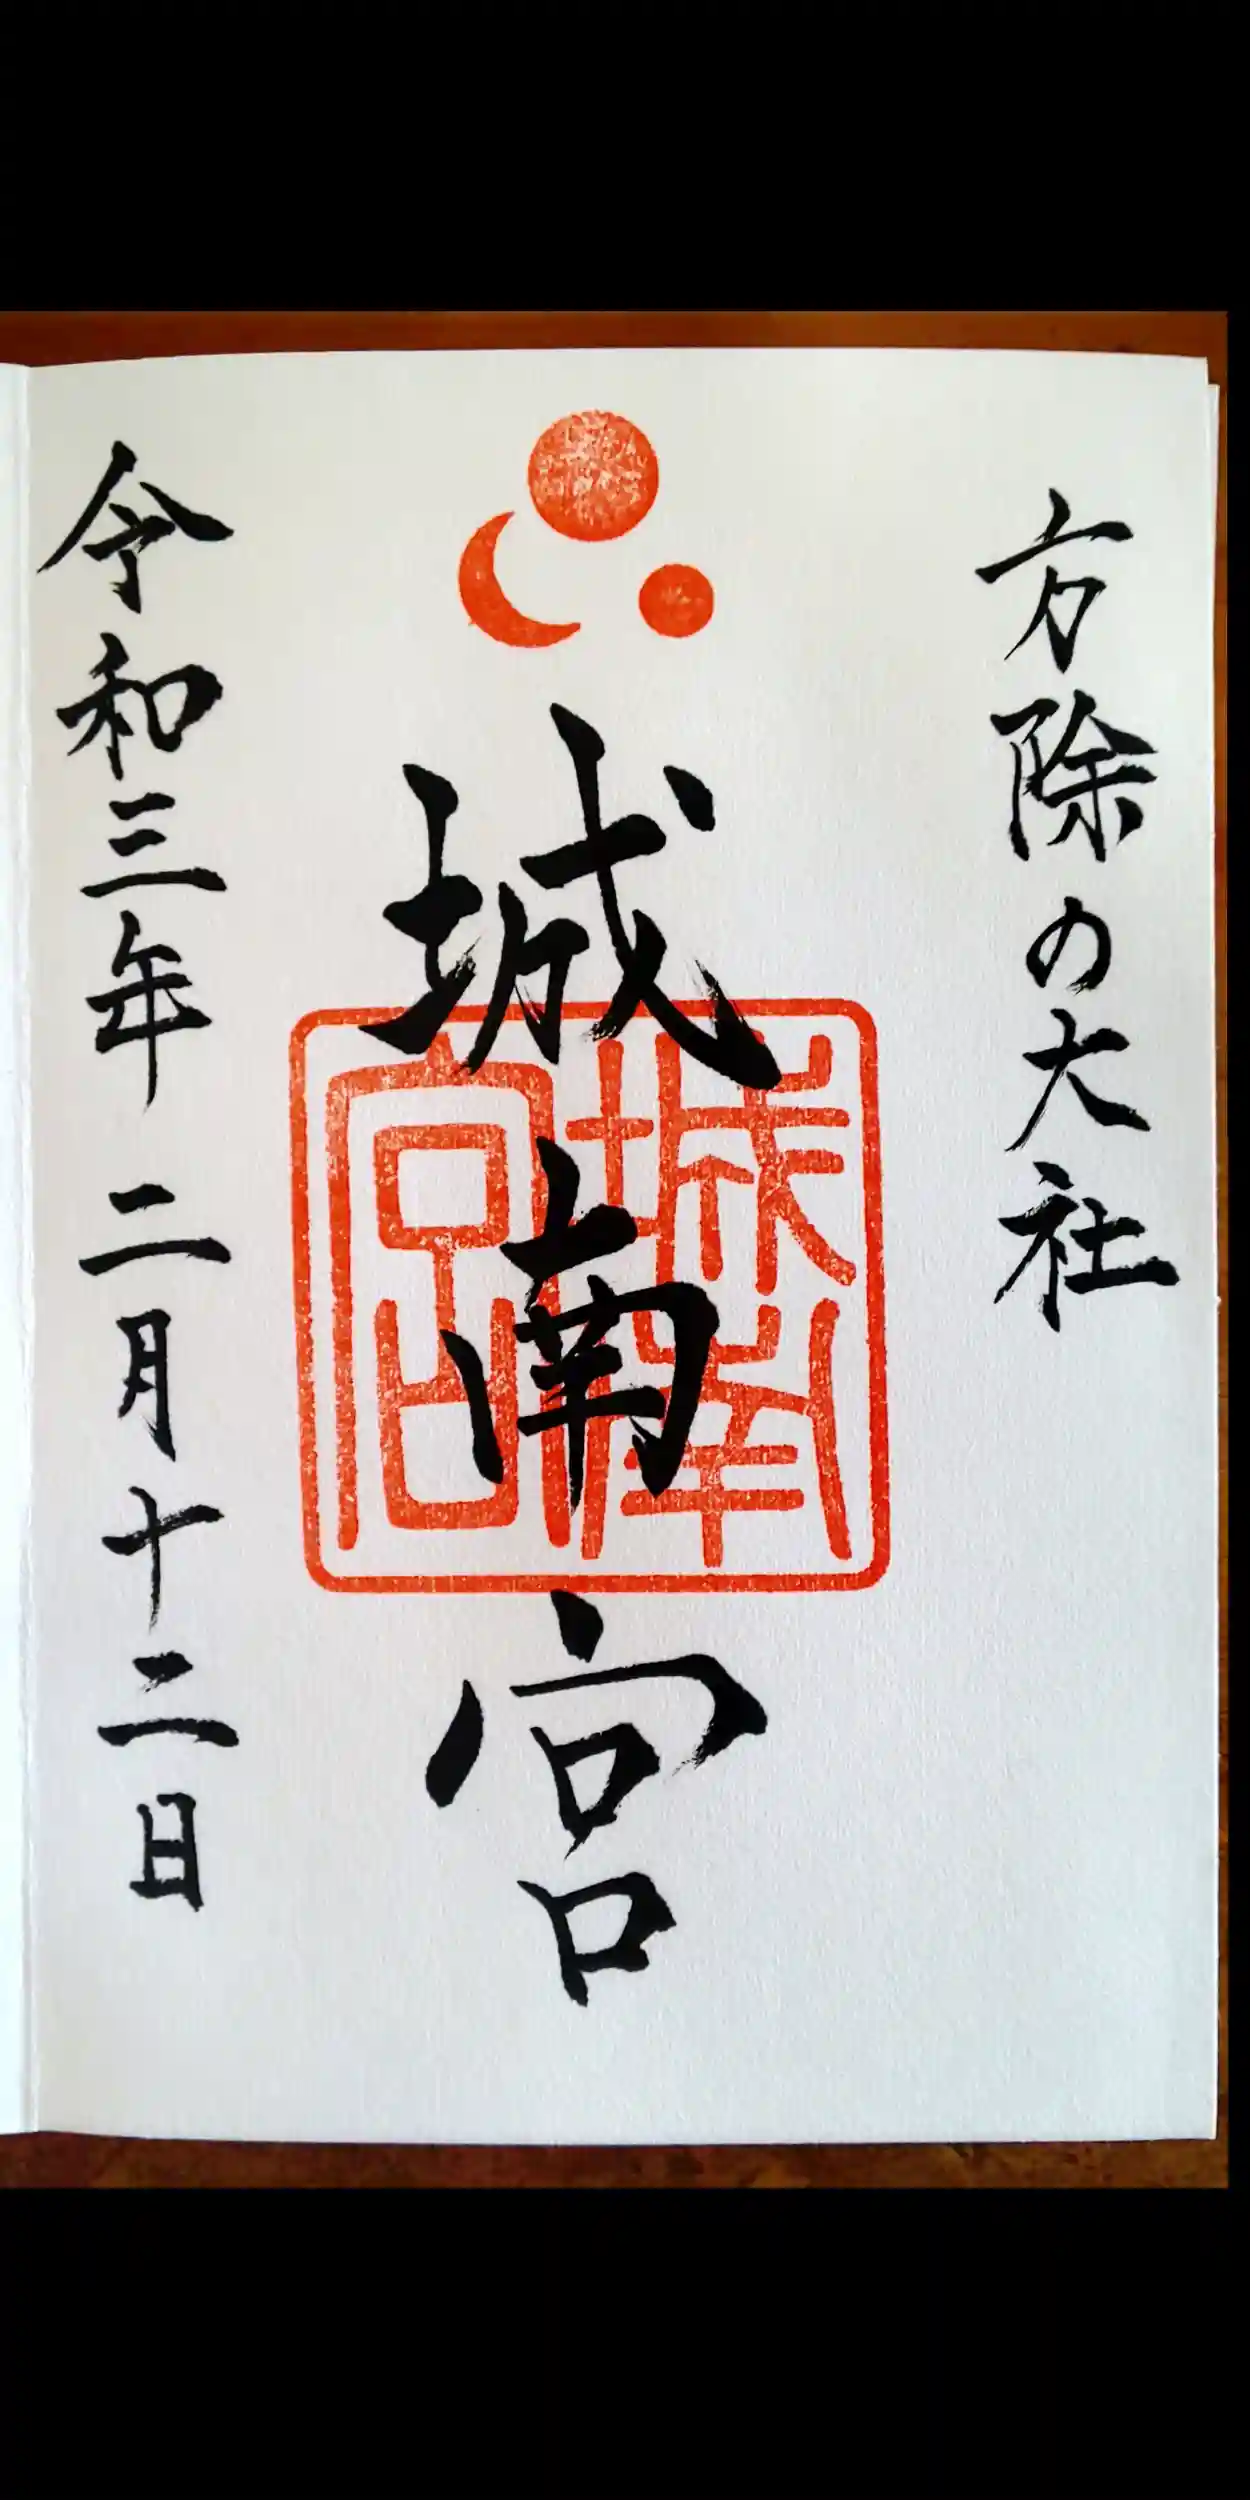 方除の大社
城南宮
城南宮
令和三年 二月十二日